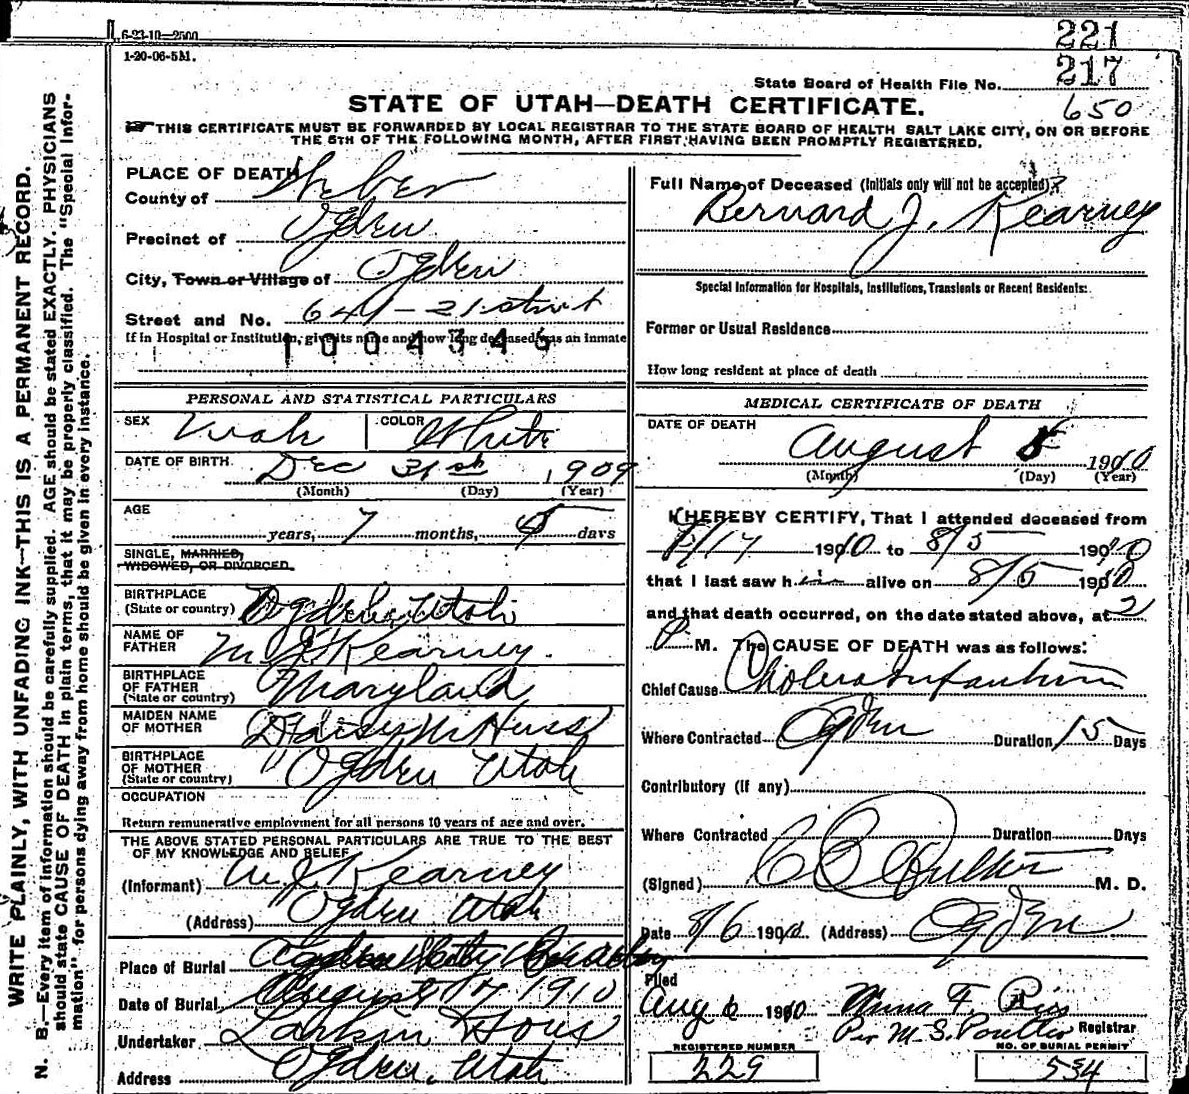 6-23-10—2500
1-20-06-5M.
221
217
State Board of Health File No.
650
STATE OF UTAH—DEATH CERTIFICATE.
THIS CERTIFICATE MUST BE FORWARDED BY LOCAL REGISTRAR TO THE STATE BOARD OF HEALTH SALT LAKE CITY, ON OR BEFORE
THE 5TH OF THE FOLLOWING MONTH, AFTER FIRST HAVING BEEN PROMPTLY REGISTERED.
WRITE PLAINLY, WITH UNFADING INK—THIS IS A PERMANENT RECORD.
N. B.—Every item of information should be carefully supplied. AGE should be stated EXACTLY. PHYSICIANS
should state CAUSE OF DEATH in plain terms, that it may be properly classified. The "Special Infor-
mation" for persons dying away from home should be given in every instance.
PLACE OF DEATH
County of Weber
Precinct of Ogden
City, Town or Village of Ogden
Street and No. - 21 street
If in Hospital or Institution, give its name and how long deceased was an inmate
1004345
PERSONAL AND STATISTICAL PARTICULARS
SEX Male COLOR White
DATE OF BIRTH Dec 31st 1909
(Month) (Day) (Year)
AGE
years, 7 months, 5 days
SINGLE, MARRIED,
WIDOWED, OR DIVORCED.
BIRTHPLACE
(State or country) Ogden, Utah
NAME OF
FATHER M J Kearney.
BIRTHPLACE
OF FATHER
(State or country) Maryland
MAIDEN NAME
OF MOTHER Daisy
BIRTHPLACE
OF MOTHER
(State or country) Ogden Utah
OCCUPATION
Return remunerative employment for all persons 10 years of age and over.
THE ABOVE STATED PERSONAL PARTICULARS ARE TRUE TO THE BEST
OF MY KNOWLEDGE AND BELIEF
(Informant) M J Kearney
(Address) Ogden Utah
Place of Burial Ogden City
Date of Burial August 7 1910
Undertaker Larkin & Sons
Address Ogden, Utah
Full Name of Deceased (Initials only will not be accepted)
Bernard J. Kearney
Special Information for Hospitals, Institutions, Transients or Recent Residents:
Former or Usual Residence
How long resident at place of death
MEDICAL CERTIFICATE OF DEATH
DATE OF DEATH
August 5 1910
(Month) (Day) (Year)
I HEREBY CERTIFY, That I attended deceased from
1910 to 8/5 1910
that I last saw him alive on 8/5 1910
and that death occurred, on the date stated above, at 2
P M. The CAUSE OF DEATH was as follows:
Chief Cause Cholera Infantum
Where Contracted Ogden Duration 15 Days
Contributory (if any)
Where Contracted Duration Days
(Signed) M. D.
Date 8/6 1910 (Address) Ogden
Filed
Aug 6 1910 F.
Per M. S. Poulter Registrar
REGISTERED NUMBER
229
NO. OF BURIAL PERMIT
534